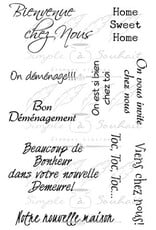 Bienvenue
chez Nous
Home
Sweet
Home
On déménage!!!
On est si bien
chez toi
On nous invite
chez nous
Bon
Déménagement
Toc, Toc, Toc...
Viens chez nous!
Beaucoup de
Bonheur
dans votre nouvelle
Demeure!
Notre nouvelle maison